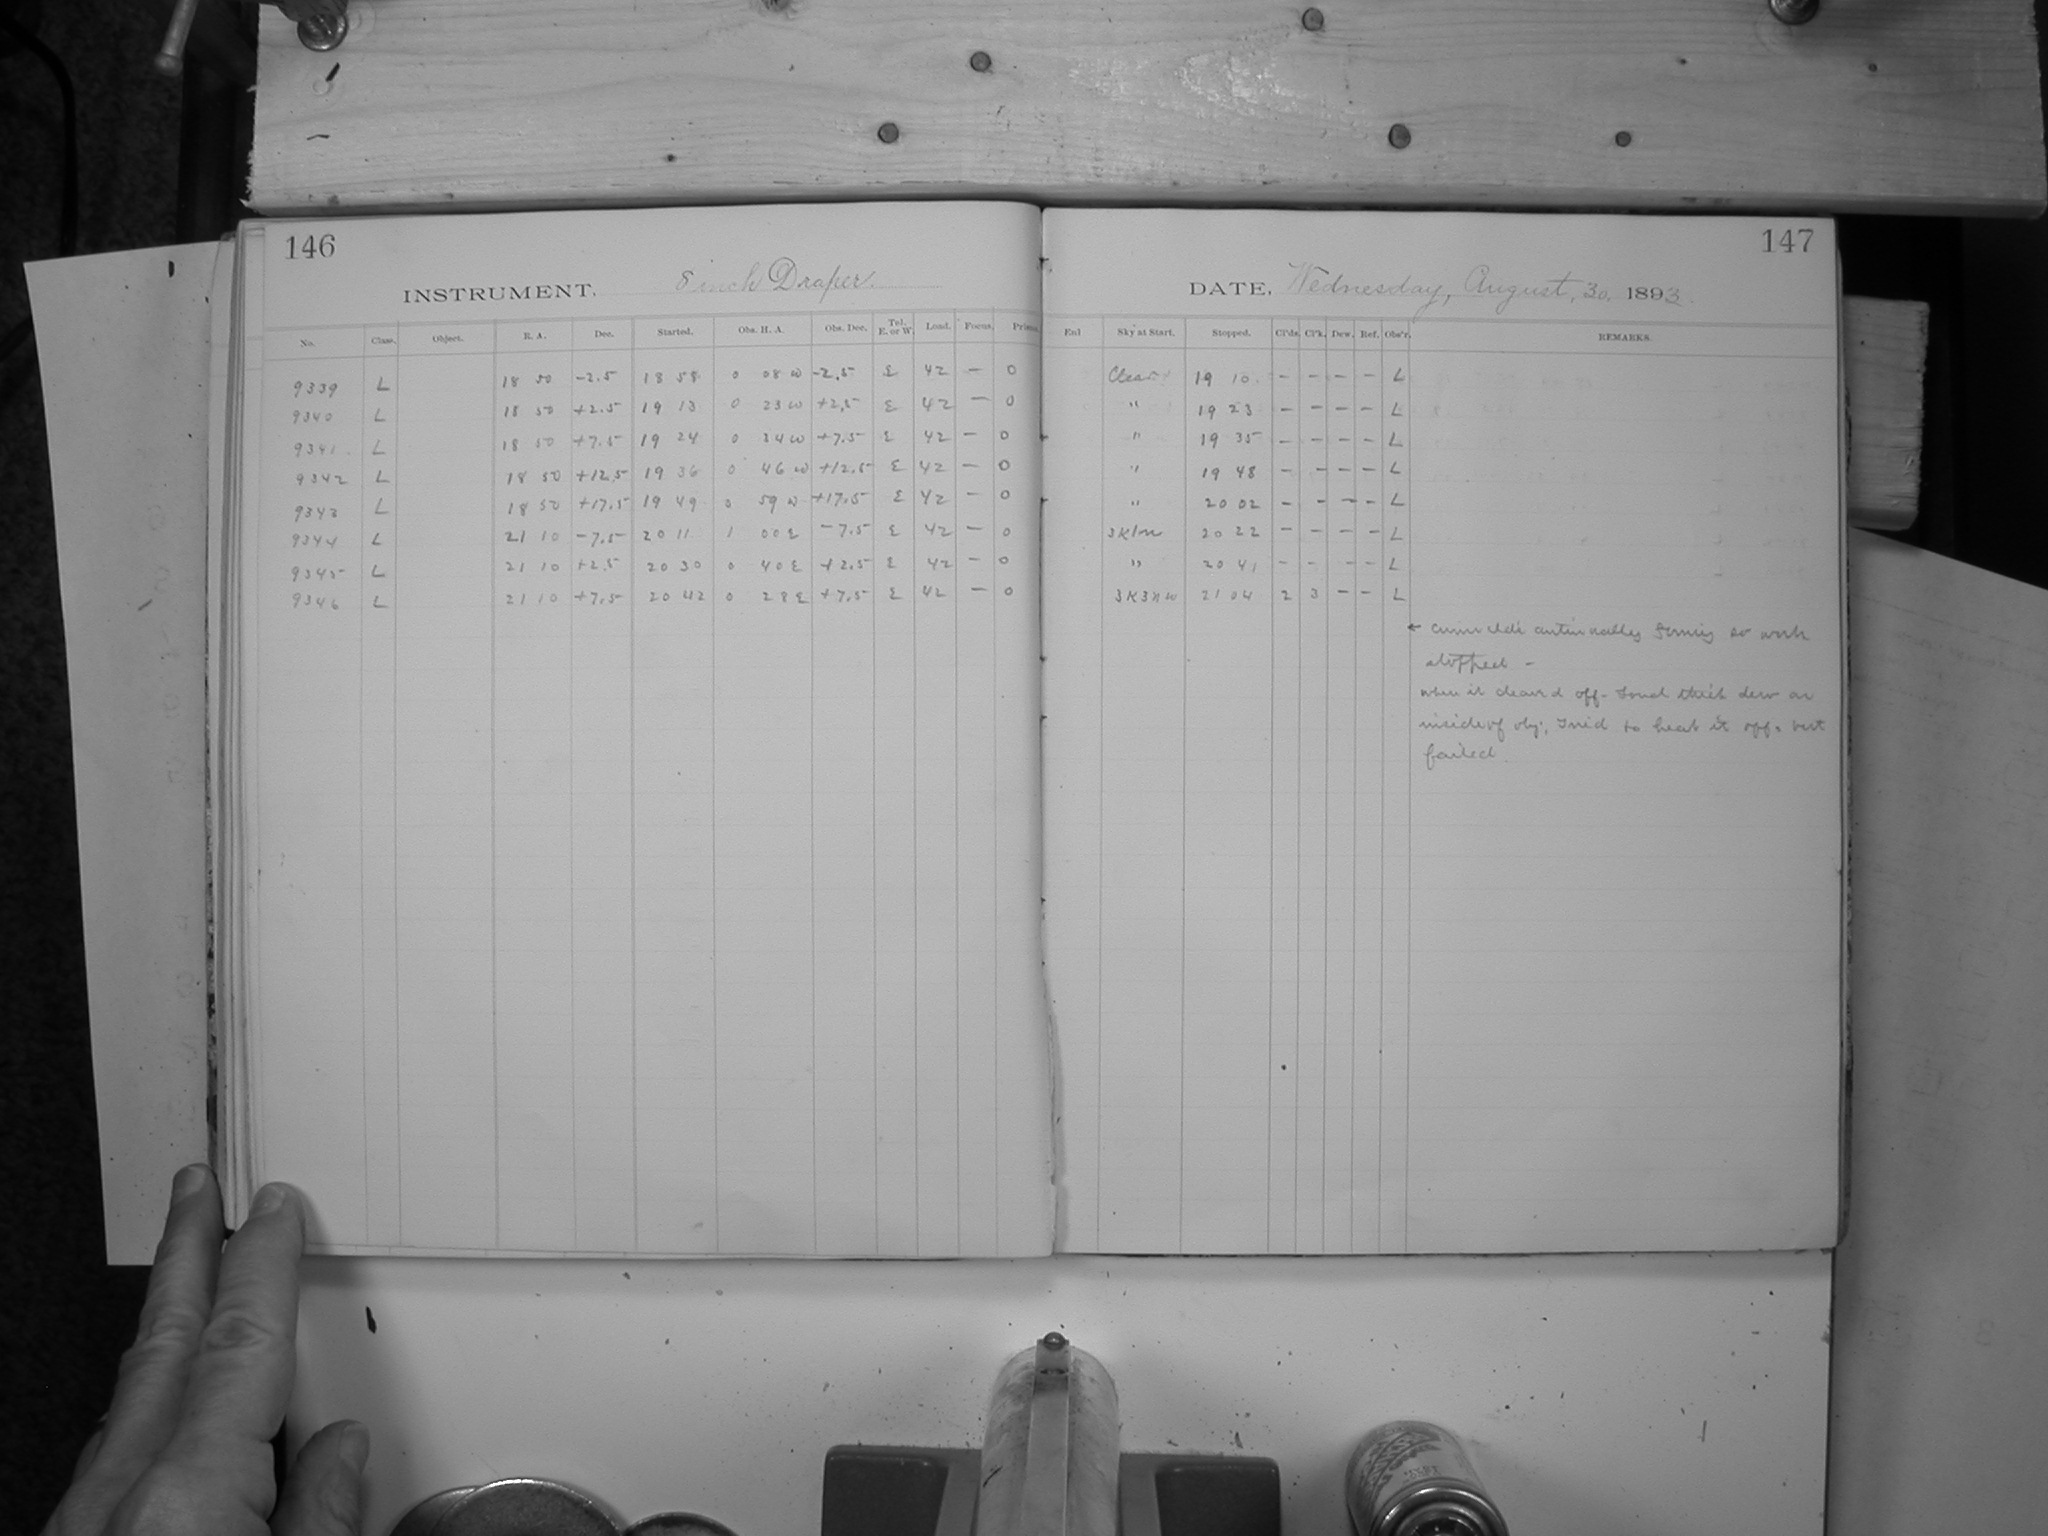 146
147
INSTRUMENT. 8 inch Draper.
DATE. Wednesday, August, 30, 1893.
No. Class. Object. R. A. Dec. Started. Obs. H. A. Obs. Dec. Tel. E. or W. Load. Focus. Prism Enl Sky at Start. Stopped. Cl'ds. Cl'k. Dew. Ref. Obs'r. REMARKS.
9339 L 18 50 -2.5 18 58 0 08 W -2.5 E 42 — 0 Clear 19 10 – – – – L
9340 L 18 50 +2.5 19 13 0 23 W +2.5 E 42 — 0 " 19 23 – – – – L
9341 L 18 50 +7.5 19 24 0 34 W +7.5 E 42 — 0 " 19 35 – – – – L
9342 L 18 50 +12.5 19 36 0 46 W +12.5 E 42 — 0 " 19 48 – – – – L
9343 L 18 50 +17.5 19 49 0 59 W +17.5 E 42 — 0 " 20 02 – – – – L
9344 L 21 10 -7.5 20 11 1 00 E -7.5 E 42 — 0 3K1N 20 22 – – – – L
9345 L 21 10 +2.5 20 30 0 40 E +2.5 E 42 — 0 " 20 41 – – – – L
9346 L 21 10 +7.5 20 42 0 28 E +7.5 E 42 — 0 3K3NW 21 04 2 3 – – L
← continually forming so work
stopped –
when it cleared off – found thick dew on
inside of obj; tried to heat it off – but
failed.